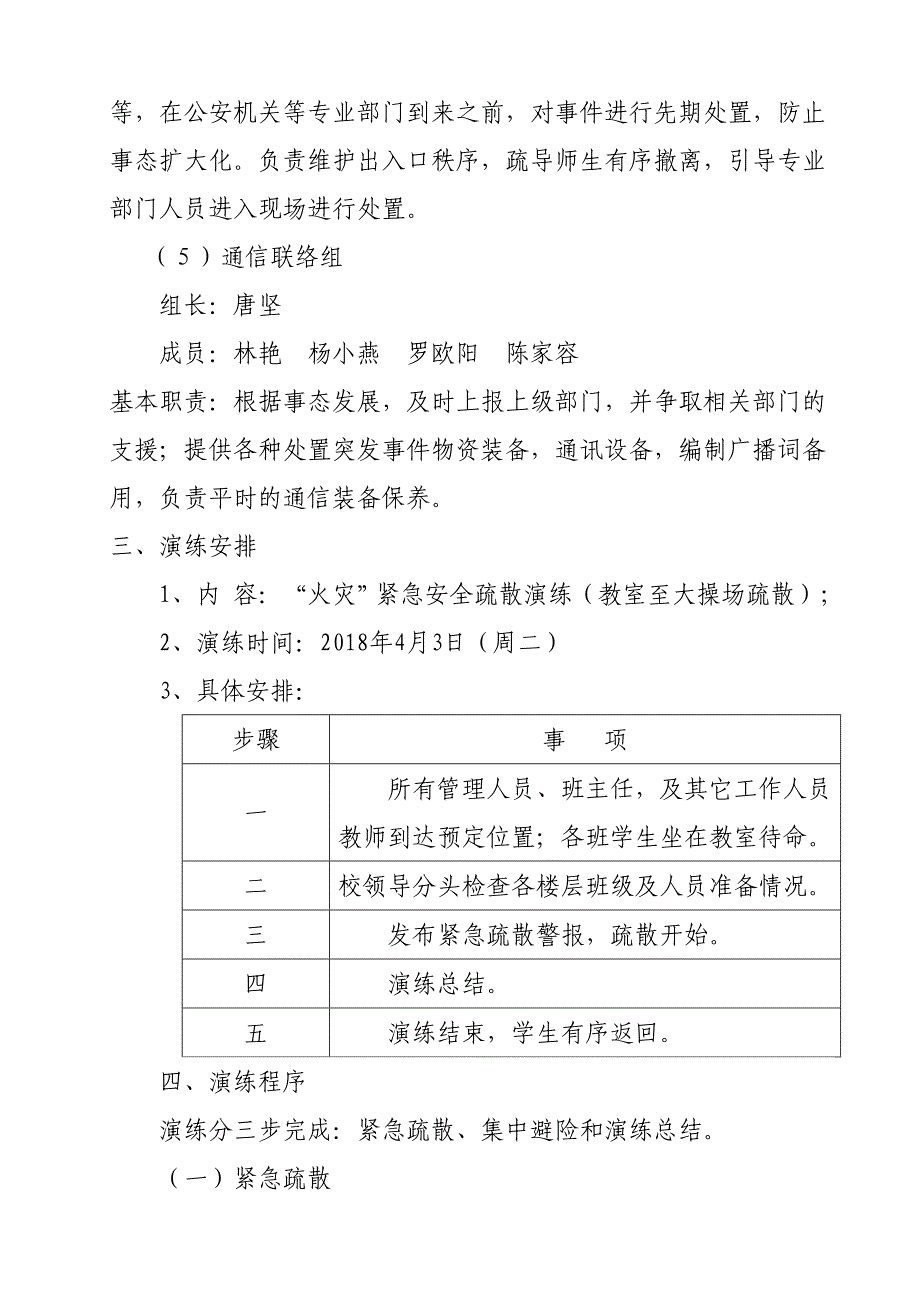 等，在公安机关等专业部门到来之前，对事件进行先期处置，防止
事态扩大化。负责维护出入口秩序，疏导师生有序撤离，引导专业
部门人员进入现场进行处置。
（5）通信联络组
组长：唐坚
成员：林艳　杨小燕　罗欧阳　陈家容
基本职责：根据事态发展，及时上报上级部门，并争取相关部门的
支援；提供各种处置突发事件物资装备，通讯设备，编制广播词备
用，负责平时的通信装备保养。
三、演练安排
1、内 容：“火灾”紧急安全疏散演练（教室至大操场疏散）；
2、演练时间：2018年4月3日（周二）
3、具体安排：
步骤　事　项
一　所有管理人员、班主任，及其它工作人员
教师到达预定位置；各班学生坐在教室待命。
二　校领导分头检查各楼层班级及人员准备情况。
三　发布紧急疏散警报，疏散开始。
四　演练总结。
五　演练结束，学生有序返回。
四、演练程序
演练分三步完成：紧急疏散、集中避险和演练总结。
（一）紧急疏散